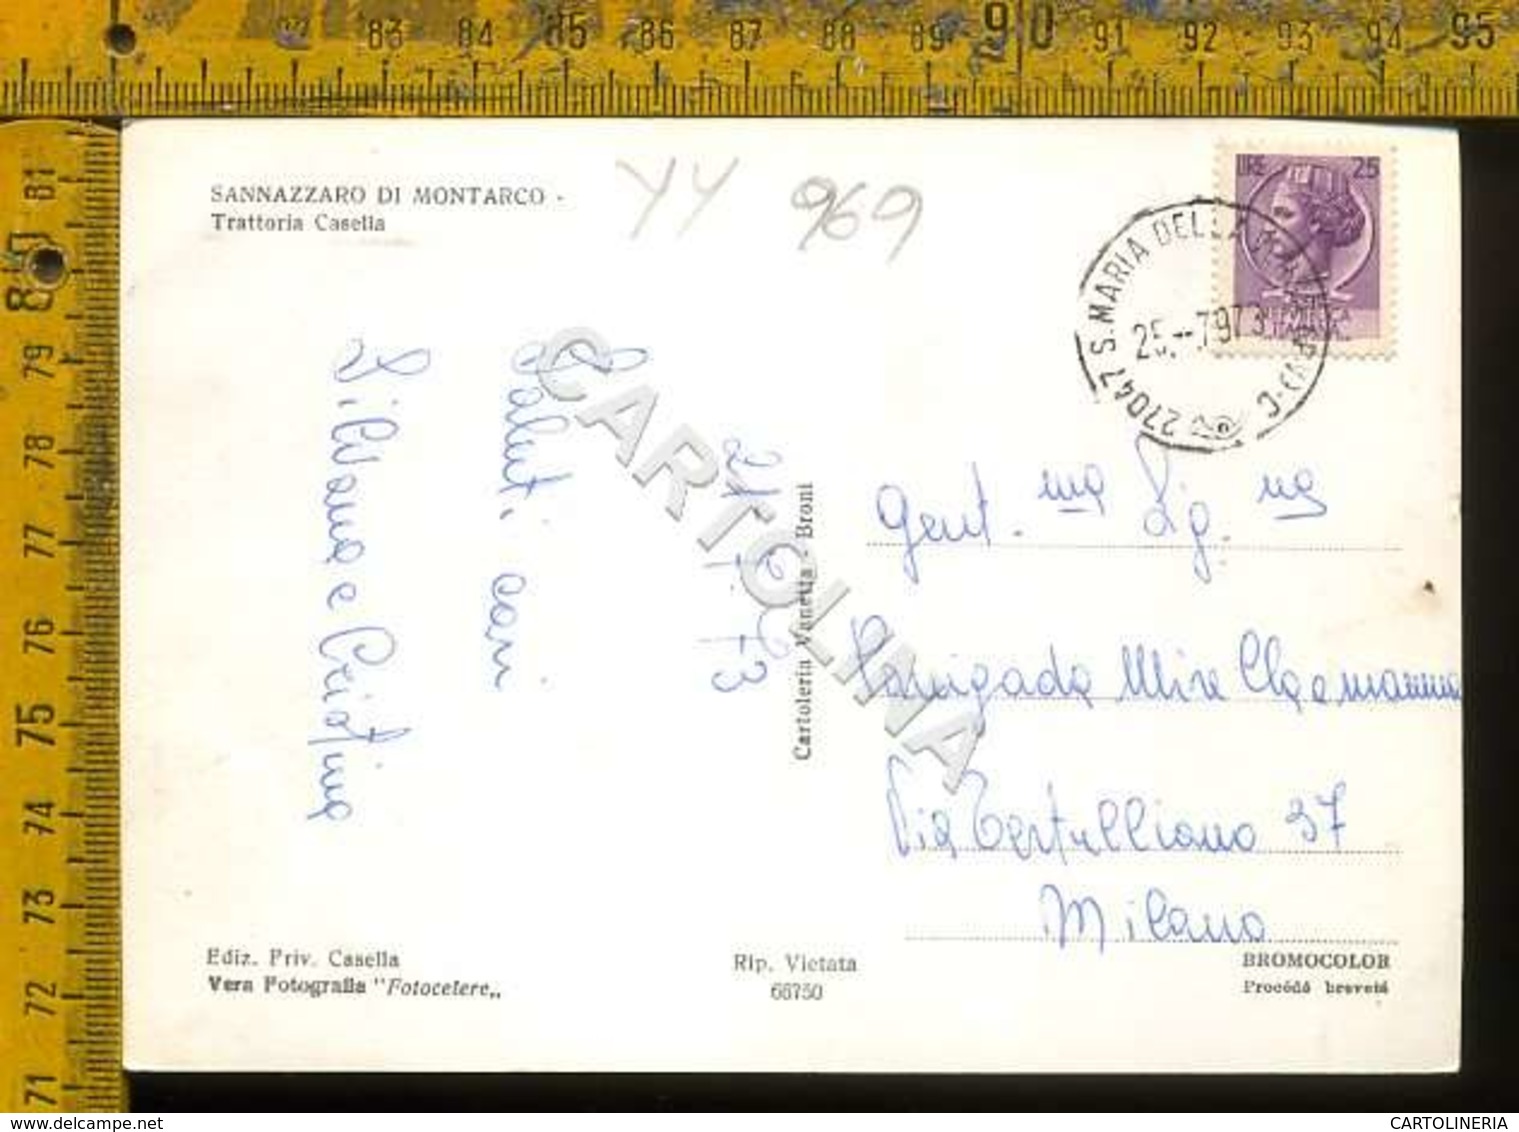 83 84 85 86 87 88 89 90 91 92 93 94 95
81
80
79
78
77
76
75
74
73
72
71
SANNAZZARO DI MONTARCO -
Trattoria Casella
YY 969
LIRE 25
27047 S. MARIA DELLA
25.-7.973
21.7.73
Saluti cari
Silvana e Cristina
Cartoleria Vanetta - Broni
Gent.ma Sig.na
Via Tertulliano 37
Milano
Ediz. Priv. Casella
Vera Fotografia "Fotocelere„
Rip. Vietata
66750
BROMOCOLOR
Procédé breveté
CARTOLINA
CARTOLINERIA